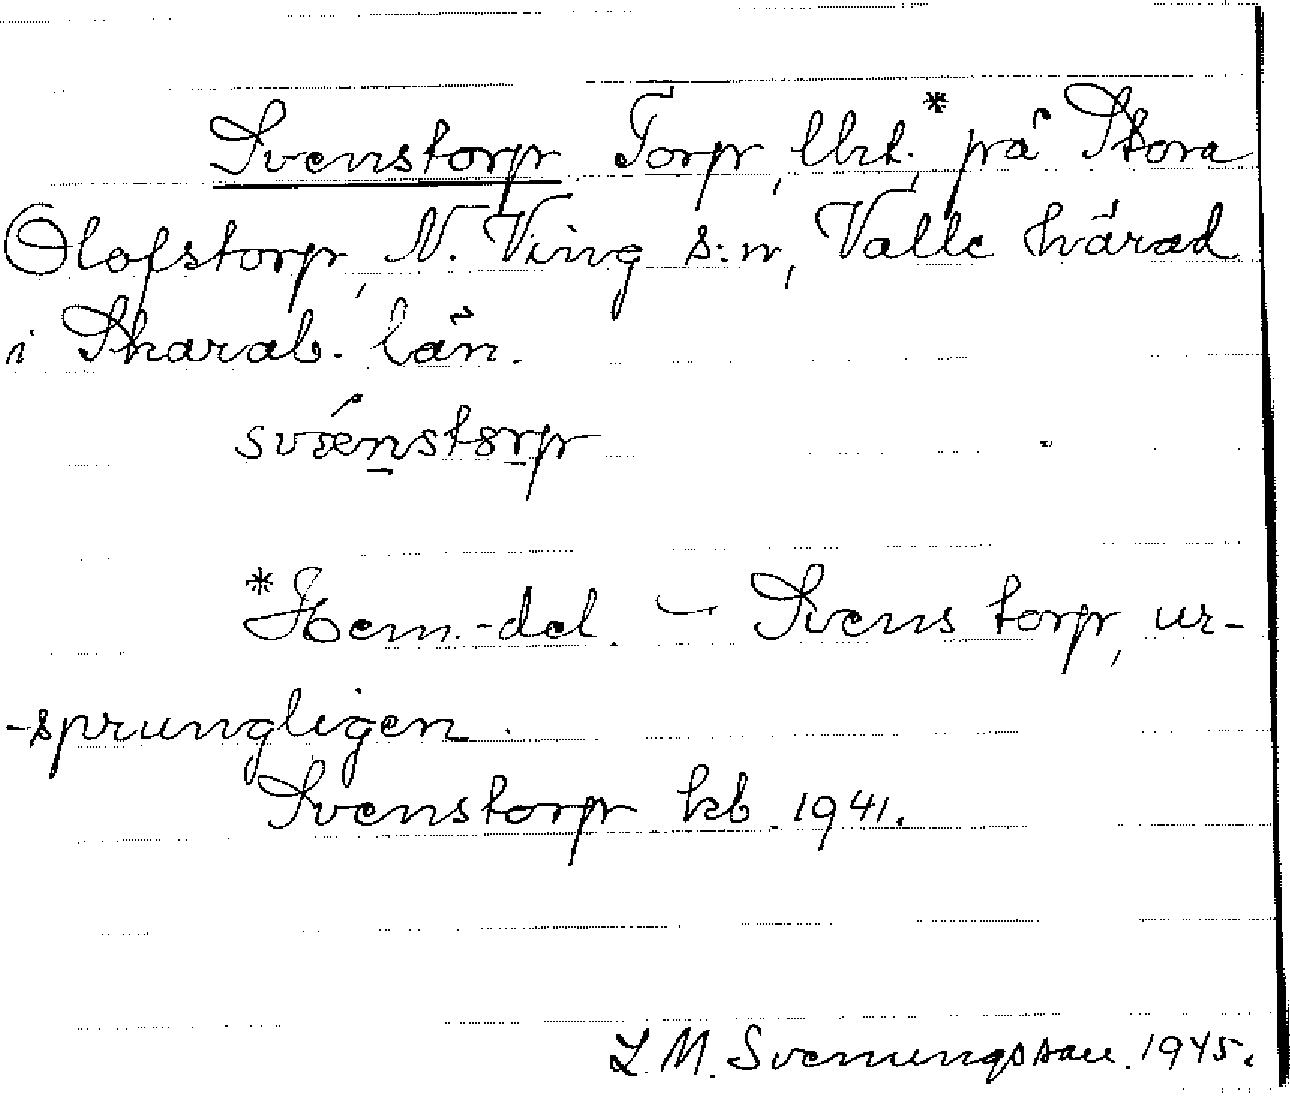 Svenstorp Torp, lbt.,* på Stora
Olofstorp, N. Ving s:n, Valle härad
i Skarab. län.
svæ̀nstorp
*Hem.-del. – Svenstorp, ur-
-sprungligen.
Svenstorp kb. 1941.
L. M. Svenungsson. 1945.